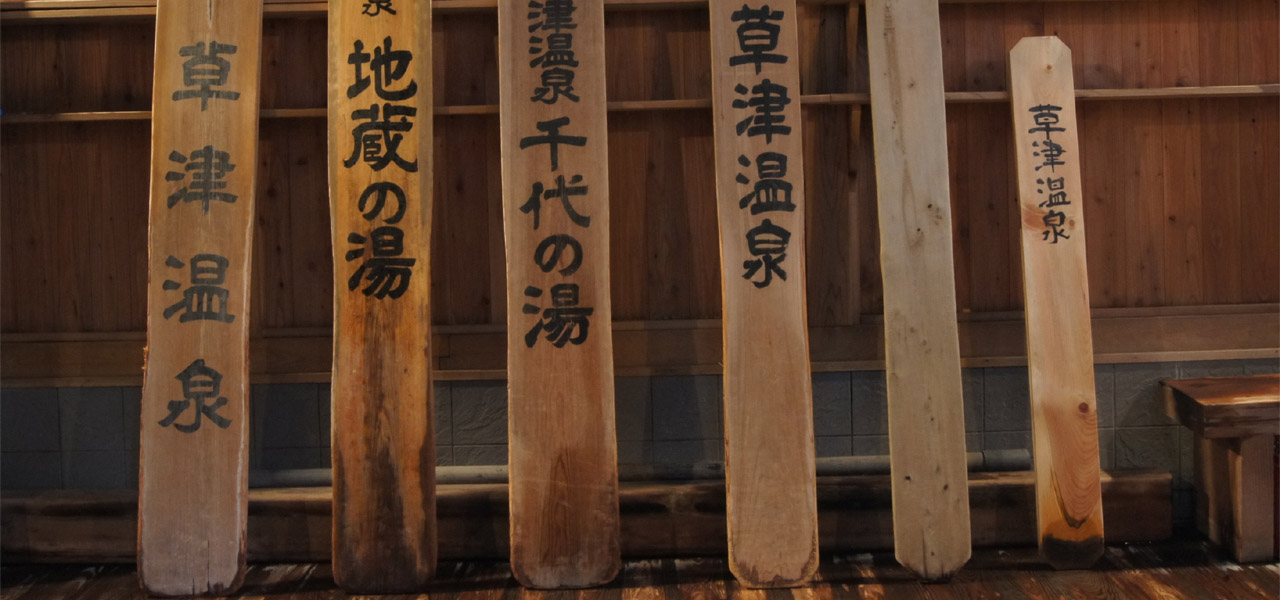 草津温泉
泉地蔵の湯
津温泉千代の湯
草津温泉
草津温泉